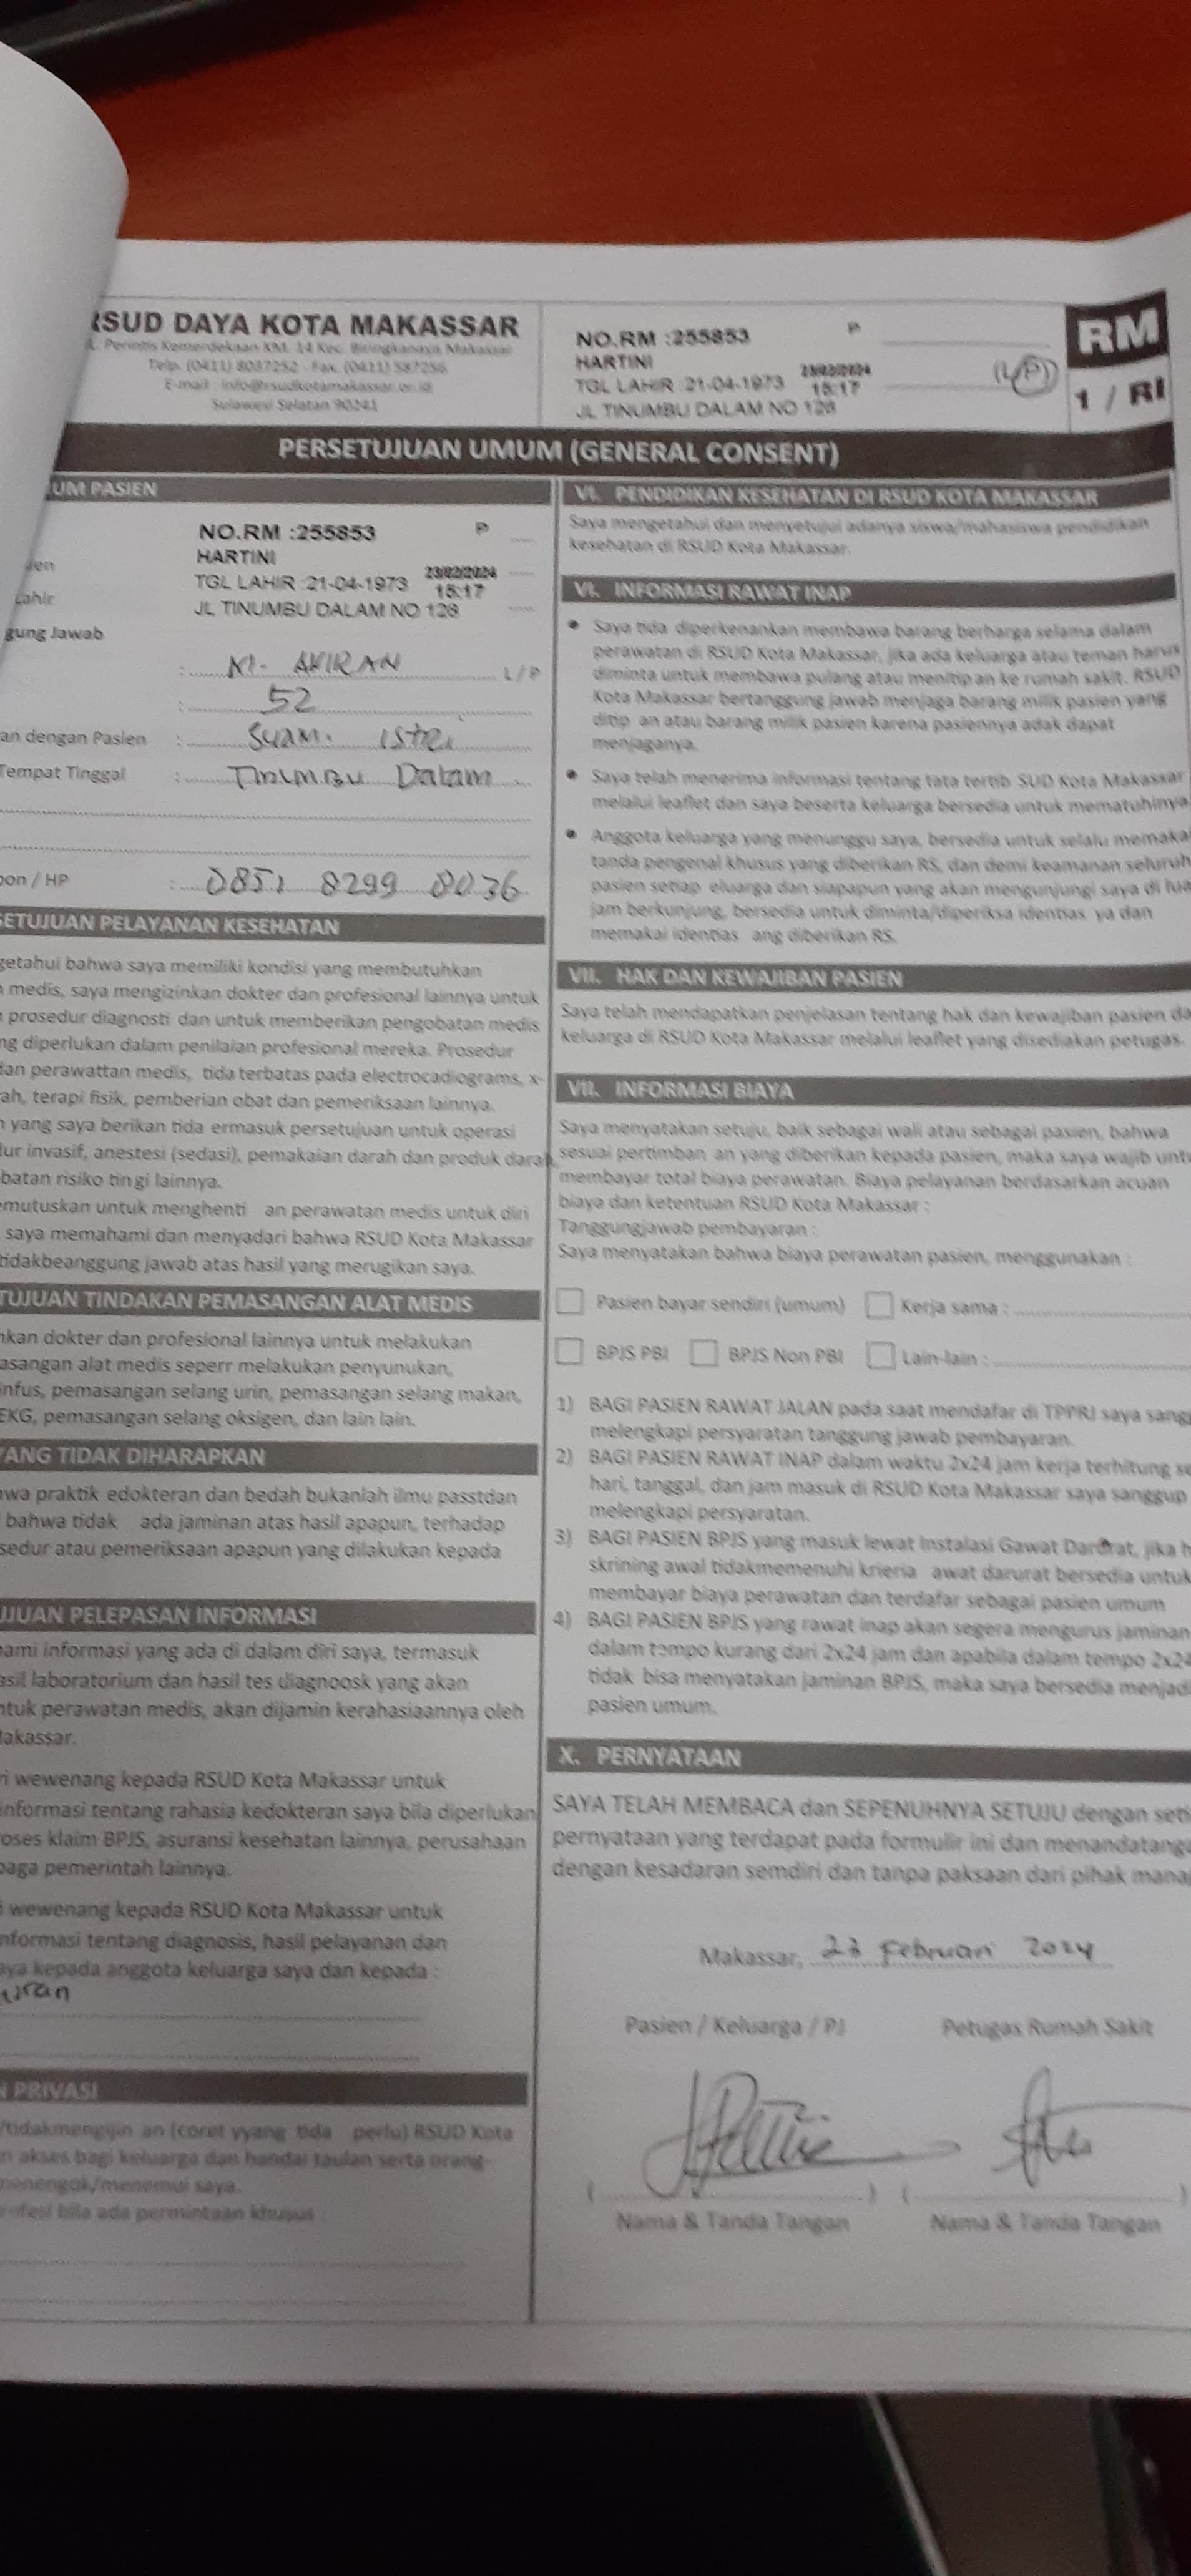 RSUD DAYA KOTA MAKASSAR
JL. Perintis Kemerdekaan KM. 14 Kec. Biringkanaya Makassar
Telp. (0411) 8037252 - Fax. (0411) 587256
E-mail : info@rsudkotamakassar.or.id
Sulawesi Selatan 90241
NO.RM :255853 P
HARTINI
TGL LAHIR :21-04-1973 23/02/2024 15:17
JL TINUMBU DALAM NO 126
(L/P)
RM
1 / RI
PERSETUJUAN UMUM (GENERAL CONSENT)
UM PASIEN
NO.RM :255853 P
ien HARTINI
TGL LAHIR :21-04-1973 23/02/2024 15:17
Lahir JL TINUMBU DALAM NO 126
gung Jawab
: L / P
: 52
an dengan Pasien : Suami istri
Tempat Tinggal : Tinumbu Dalam
pon / HP : 0851 8299 8036
SETUJUAN PELAYANAN KESEHATAN
getahui bahwa saya memiliki kondisi yang membutuhkan
n medis, saya mengizinkan dokter dan profesional lainnya untuk
n prosedur diagnosti dan untuk memberikan pengobatan medis
ng diperlukan dalam penilaian profesional mereka. Prosedur
dan perawattan medis, tida terbatas pada electrocadiograms, x-
ah, terapi fisik, pemberian obat dan pemeriksaan lainnya.
n yang saya berikan tida ermasuk persetujuan untuk operasi
dur invasif, anestesi (sedasi), pemakaian darah dan produk darah,
batan risiko tin gi lainnya.
emutuskan untuk menghenti an perawatan medis untuk diri
saya memahami dan menyadari bahwa RSUD Kota Makassar
tidakbeanggung jawab atas hasil yang merugikan saya.
TUJUAN TINDAKAN PEMASANGAN ALAT MEDIS
nkan dokter dan profesional lainnya untuk melakukan
asangan alat medis seperr melakukan penyunukan,
infus, pemasangan selang urin, pemasangan selang makan,
EKG, pemasangan selang oksigen, dan lain lain.
YANG TIDAK DIHARAPKAN
wa praktik edokteran dan bedah bukanlah ilmu passtdan
bahwa tidak ada jaminan atas hasil apapun, terhadap
sedur atau pemeriksaan apapun yang dilakukan kepada
UJUAN PELEPASAN INFORMASI
ami informasi yang ada di dalam diri saya, termasuk
asil laboratorium dan hasil tes diagnoosk yang akan
ntuk perawatan medis, akan dijamin kerahasiaannya oleh
Makassar.
ri wewenang kepada RSUD Kota Makassar untuk
informasi tentang rahasia kedokteran saya bila diperlukan
oses klaim BPJS, asuransi kesehatan lainnya, perusahaan
baga pemerintah lainnya.
i wewenang kepada RSUD Kota Makassar untuk
nformasi tentang diagnosis, hasil pelayanan dan
aya kepada anggota keluarga saya dan kepada :
N PRIVASI
/tidakmengijin an (coret yyang tida perlu) RSUD Kota
ri akses bagi keluarga dan handai taulan serta orang-
menengok/menemui saya.
rofesi bila ada permintaan khusus :
VI. PENDIDIKAN KESEHATAN DI RSUD KOTA MAKASSAR
Saya mengetahui dan menyetujui adanya siswa/mahasiswa pendidikan
kesehatan di RSUD Kota Makassar.
VI. INFORMASI RAWAT INAP
• Saya tida diperkenankan membawa barang berharga selama dalam
perawatan di RSUD Kota Makassar, jika ada keluarga atau teman harus
diminta untuk membawa pulang atau menitip an ke rumah sakit. RSUD
Kota Makassar bertanggung jawab menjaga barang milik pasien yang
ditip an atau barang milik pasien karena pasiennya adak dapat
menjaganya.
• Saya telah menerima informasi tentang tata tertib SUD Kota Makassar
melalui leaflet dan saya beserta keluarga bersedia untuk mematuhinya
• Anggota keluarga yang menunggu saya, bersedia untuk selalu memakai
tanda pengenal khusus yang diberikan RS, dan demi keamanan seluruh
pasien setiap eluarga dan siapapun yang akan mengunjungi saya di lua
jam berkunjung, bersedia untuk diminta/diperiksa identias ya dan
memakai identias ang diberikan RS.
VII. HAK DAN KEWAJIBAN PASIEN
Saya telah mendapatkan penjelasan tentang hak dan kewajiban pasien da
keluarga di RSUD Kota Makassar melalui leaflet yang disediakan petugas.
VII. INFORMASI BIAYA
Saya menyatakan setuju, baik sebagai wali atau sebagai pasien, bahwa
sesuai pertimban an yang diberikan kepada pasien, maka saya wajib untu
membayar total biaya perawatan. Biaya pelayanan berdasarkan acuan
biaya dan ketentuan RSUD Kota Makassar :
Tanggungjawab pembayaran :
Saya menyatakan bahwa biaya perawatan pasien, menggunakan :
Pasien bayar sendiri (umum) Kerja sama :
BPJS PBI BPJS Non PBI Lain-lain :
1) BAGI PASIEN RAWAT JALAN pada saat mendafar di TPPRJ saya sangg
melengkapi persyaratan tanggung jawab pembayaran.
2) BAGI PASIEN RAWAT INAP dalam waktu 2x24 jam kerja terhitung se
hari, tanggal, dan jam masuk di RSUD Kota Makassar saya sanggup
melengkapi persyaratan.
3) BAGI PASIEN BPJS yang masuk lewat Instalasi Gawat Darurat, jika h
skrining awal tidakmemenuhi krieria awat darurat bersedia untuk
membayar biaya perawatan dan terdafar sebagai pasien umum
4) BAGI PASIEN BPJS yang rawat inap akan segera mengurus jaminan
dalam tempo kurang dari 2x24 jam dan apabila dalam tempo 2x24
tidak bisa menyatakan jaminan BPJS, maka saya bersedia menjadi
pasien umum.
X. PERNYATAAN
SAYA TELAH MEMBACA dan SEPENUHNYA SETUJU dengan seti
pernyataan yang terdapat pada formulir ini dan menandatanga
dengan kesadaran semdiri dan tanpa paksaan dari pihak mana
Makassar, 23 Februari 2024
Pasien / Keluarga / PJ Petugas Rumah Sakit
( ) ( )
Nama & Tanda Tangan Nama & Tanda Tangan